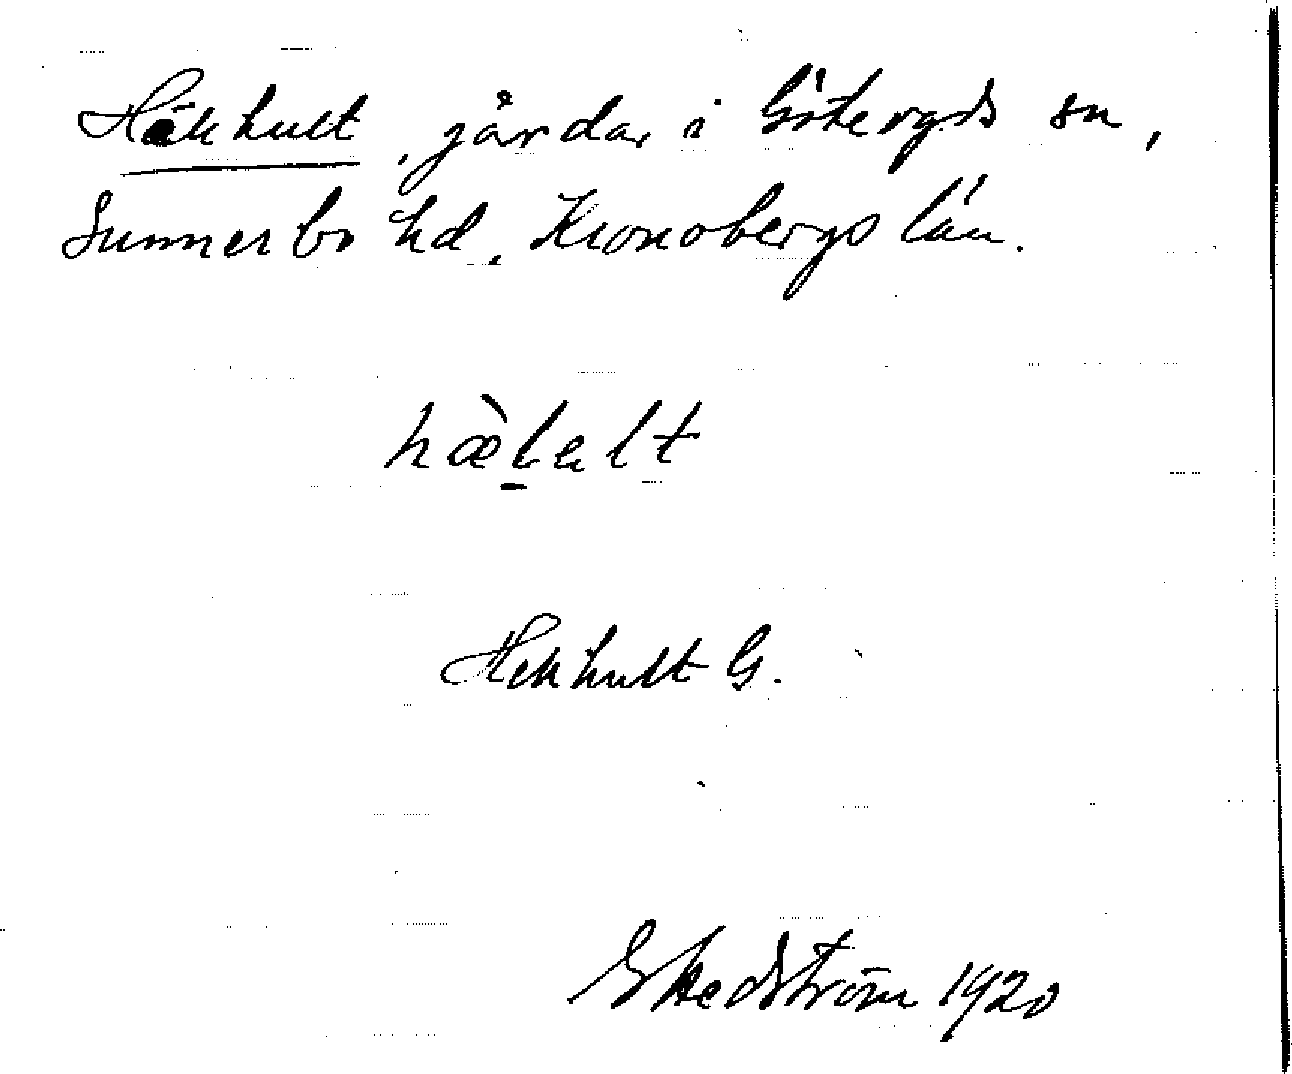 Häkhult, gårdar i Göteryds sn,
Sunnerbo hd, Kronobergs län.
hæ̀kɐlt
Hekhult G.
G Hedström 1920